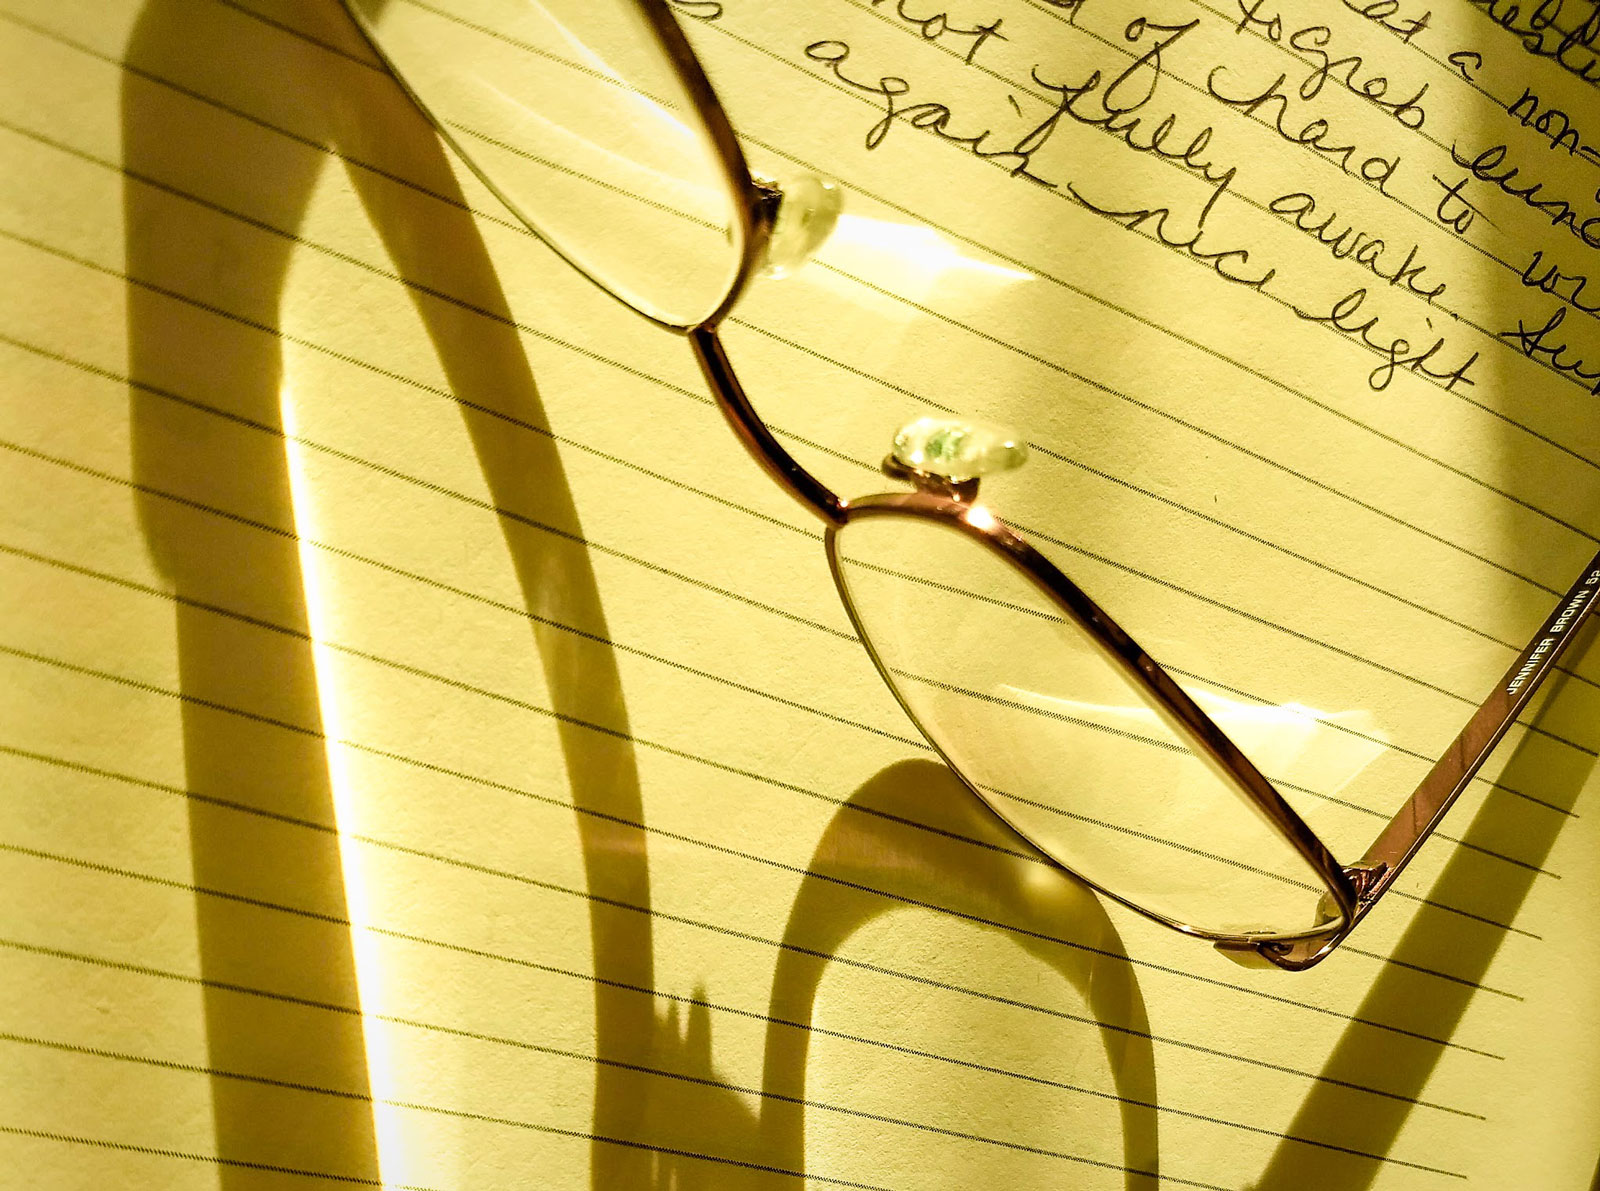 at a non-
to grab lunc
of hard to wor
not fully awake. Sun
again - nice light
JENNIFER BROWN 52